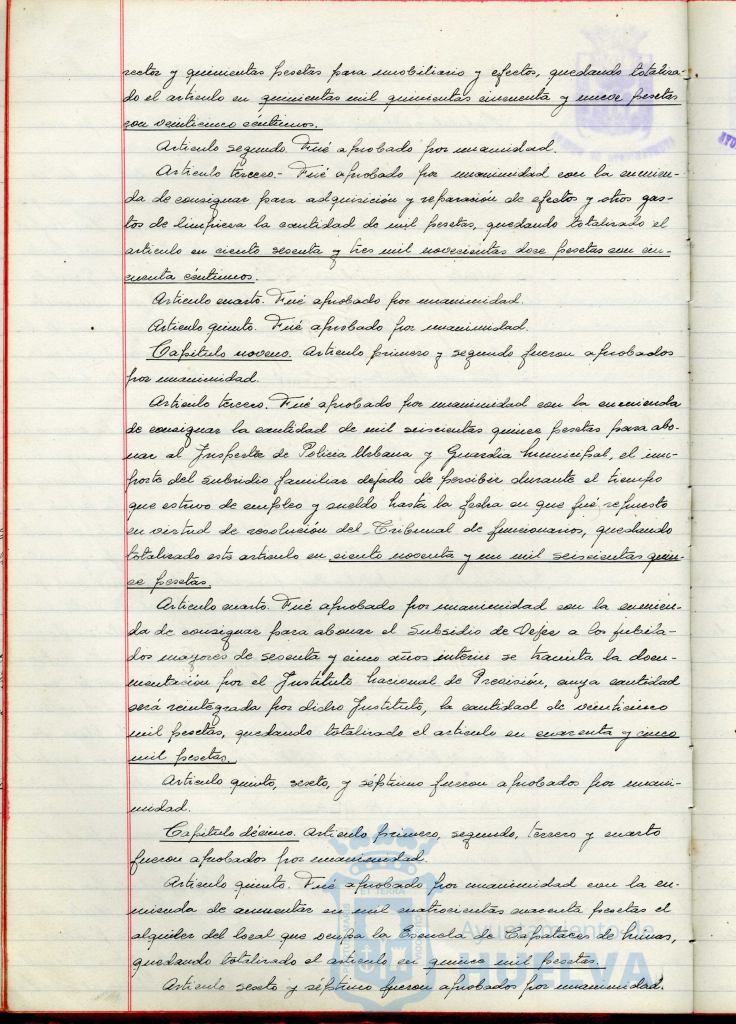 rector y quinientas pesetas para mobiliario y efectos, quedando totaliza-
do el artículo en quinientas mil quinientas cincuenta y nueve pesetas
con veinticinco céntimos.
Artículo segundo. Fué aprobado por unanimidad.
Artículo tercero.- Fué aprobado por unanimidad con la enmien-
da de consignar para adquisición y reparación de efectos y otros gas-
tos de limpieza la cantidad de mil pesetas, quedando totalizado el
artículo en ciento sesenta y tres mil novecientas doce pesetas con cin-
cuenta céntimos.
Artículo cuarto. Fué aprobado por unanimidad.
Artículo quinto. Fué aprobado por unanimidad.
Capítulo noveno. Artículo primero y segundo fueron aprobados
por unanimidad.
Artículo tercero. Fué aprobado por unanimidad con la enmienda
de consignar la cantidad de mil seiscientas quince pesetas para abo-
nar al Inspector de Policía Urbana y Guardia Municipal, el im-
porte del subsidio familiar dejado de percibir durante el tiempo
que estuvo de empleo y sueldo hasta la fecha en que fué repuesto
en virtud de resolución del Tribunal de funcionarios, quedando
totalizado este artículo en ciento noventa y un mil seiscientas quin-
ce pesetas.
Artículo cuarto. Fué aprobado por unanimidad con la enmien-
da de consignar para abonar el Subsidio de Vejez a los jubila-
dos mayores de sesenta y cinco años interin se tramita la docu-
mentación por el Instituto Nacional de Previsión, cuya cantidad
será reintegrada por dicho Instituto, la cantidad de veinticinco
mil pesetas, quedando totalizado el artículo en cuarenta y cinco
mil pesetas.
Artículo quinto, sexto, y séptimo fueron aprobados por unani-
midad.
Capítulo décimo. Artículo primero, segundo, tercero y cuarto
fueron aprobados por unanimidad.
Artículo quinto. Fué aprobado por unanimidad con la en-
mienda de aumentar en mil cuatrocientas cuarenta pesetas el
alquiler del local que ocupa la Escuela de Capataces de Minas,
quedando totalizado el artículo en quince mil pesetas.
Artículo sexto y séptimo fueron aprobados por unanimidad.
Ayuntamiento de
HUELVA